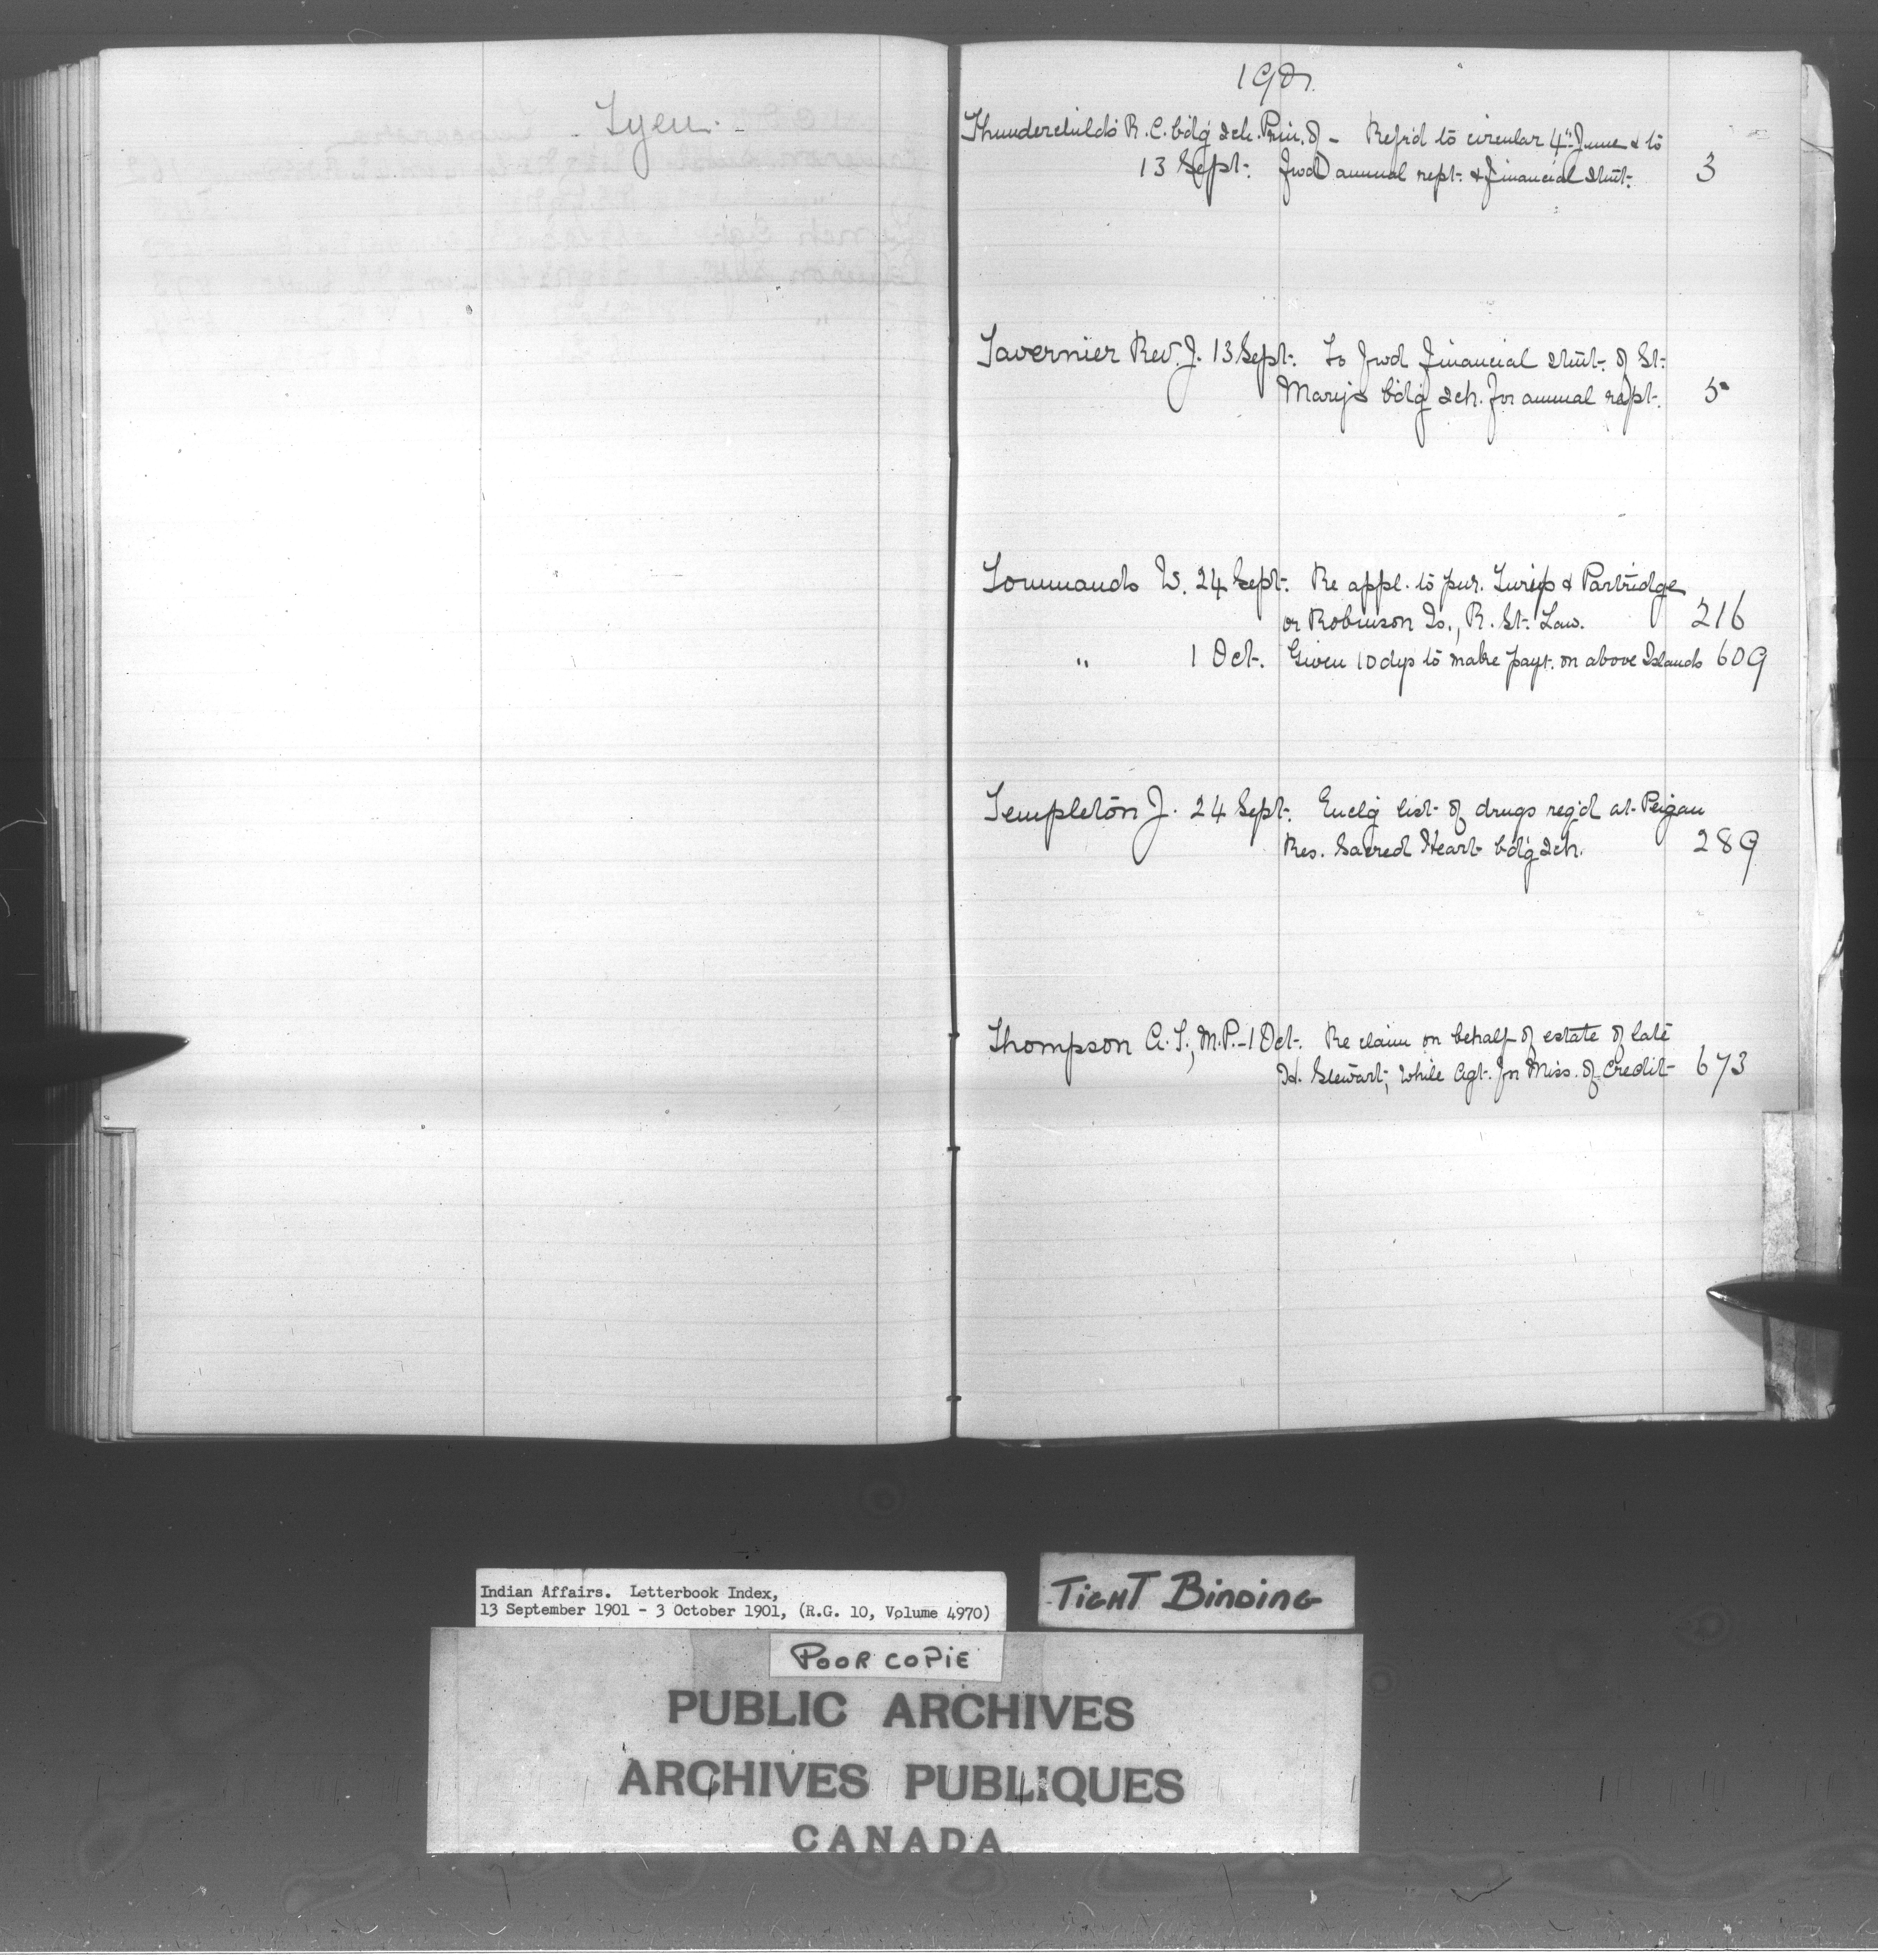 - Tyen. -
1901.
Thunderchilds R. C. bdg sch. Prin. of - Refd to circular 4th June & to
13 Sept. fwd annual rept. & financial stmt. 3
Tavernier Rev. J. 13 Sept. To fwd financial stmt. of St.
Mary's bdg sch. for annual rept. 5
Tommands W. 24 Sept. Re appl. to pur. Turnip & Partridge
or Robinson Is., R. St. Law. 216
" 1 Oct. Given 10 dys to make payt. on above Islands 609
Templeton J. 24 Sept. Enclg list of drugs reqd at Peigan
Res. Sacred Heart bdg sch. 289
Thompson A. T., M.P. - 1 Oct. Re claim on behalf of estate of late
H. Stewart, while Agt. for Miss. of Credit 673
Indian Affairs. Letterbook Index,
13 September 1901 - 3 October 1901, (R.G. 10, Volume 4970)
TIGHT BINDING
POOR COPIE
PUBLIC ARCHIVES
ARCHIVES PUBLIQUES
CANADA